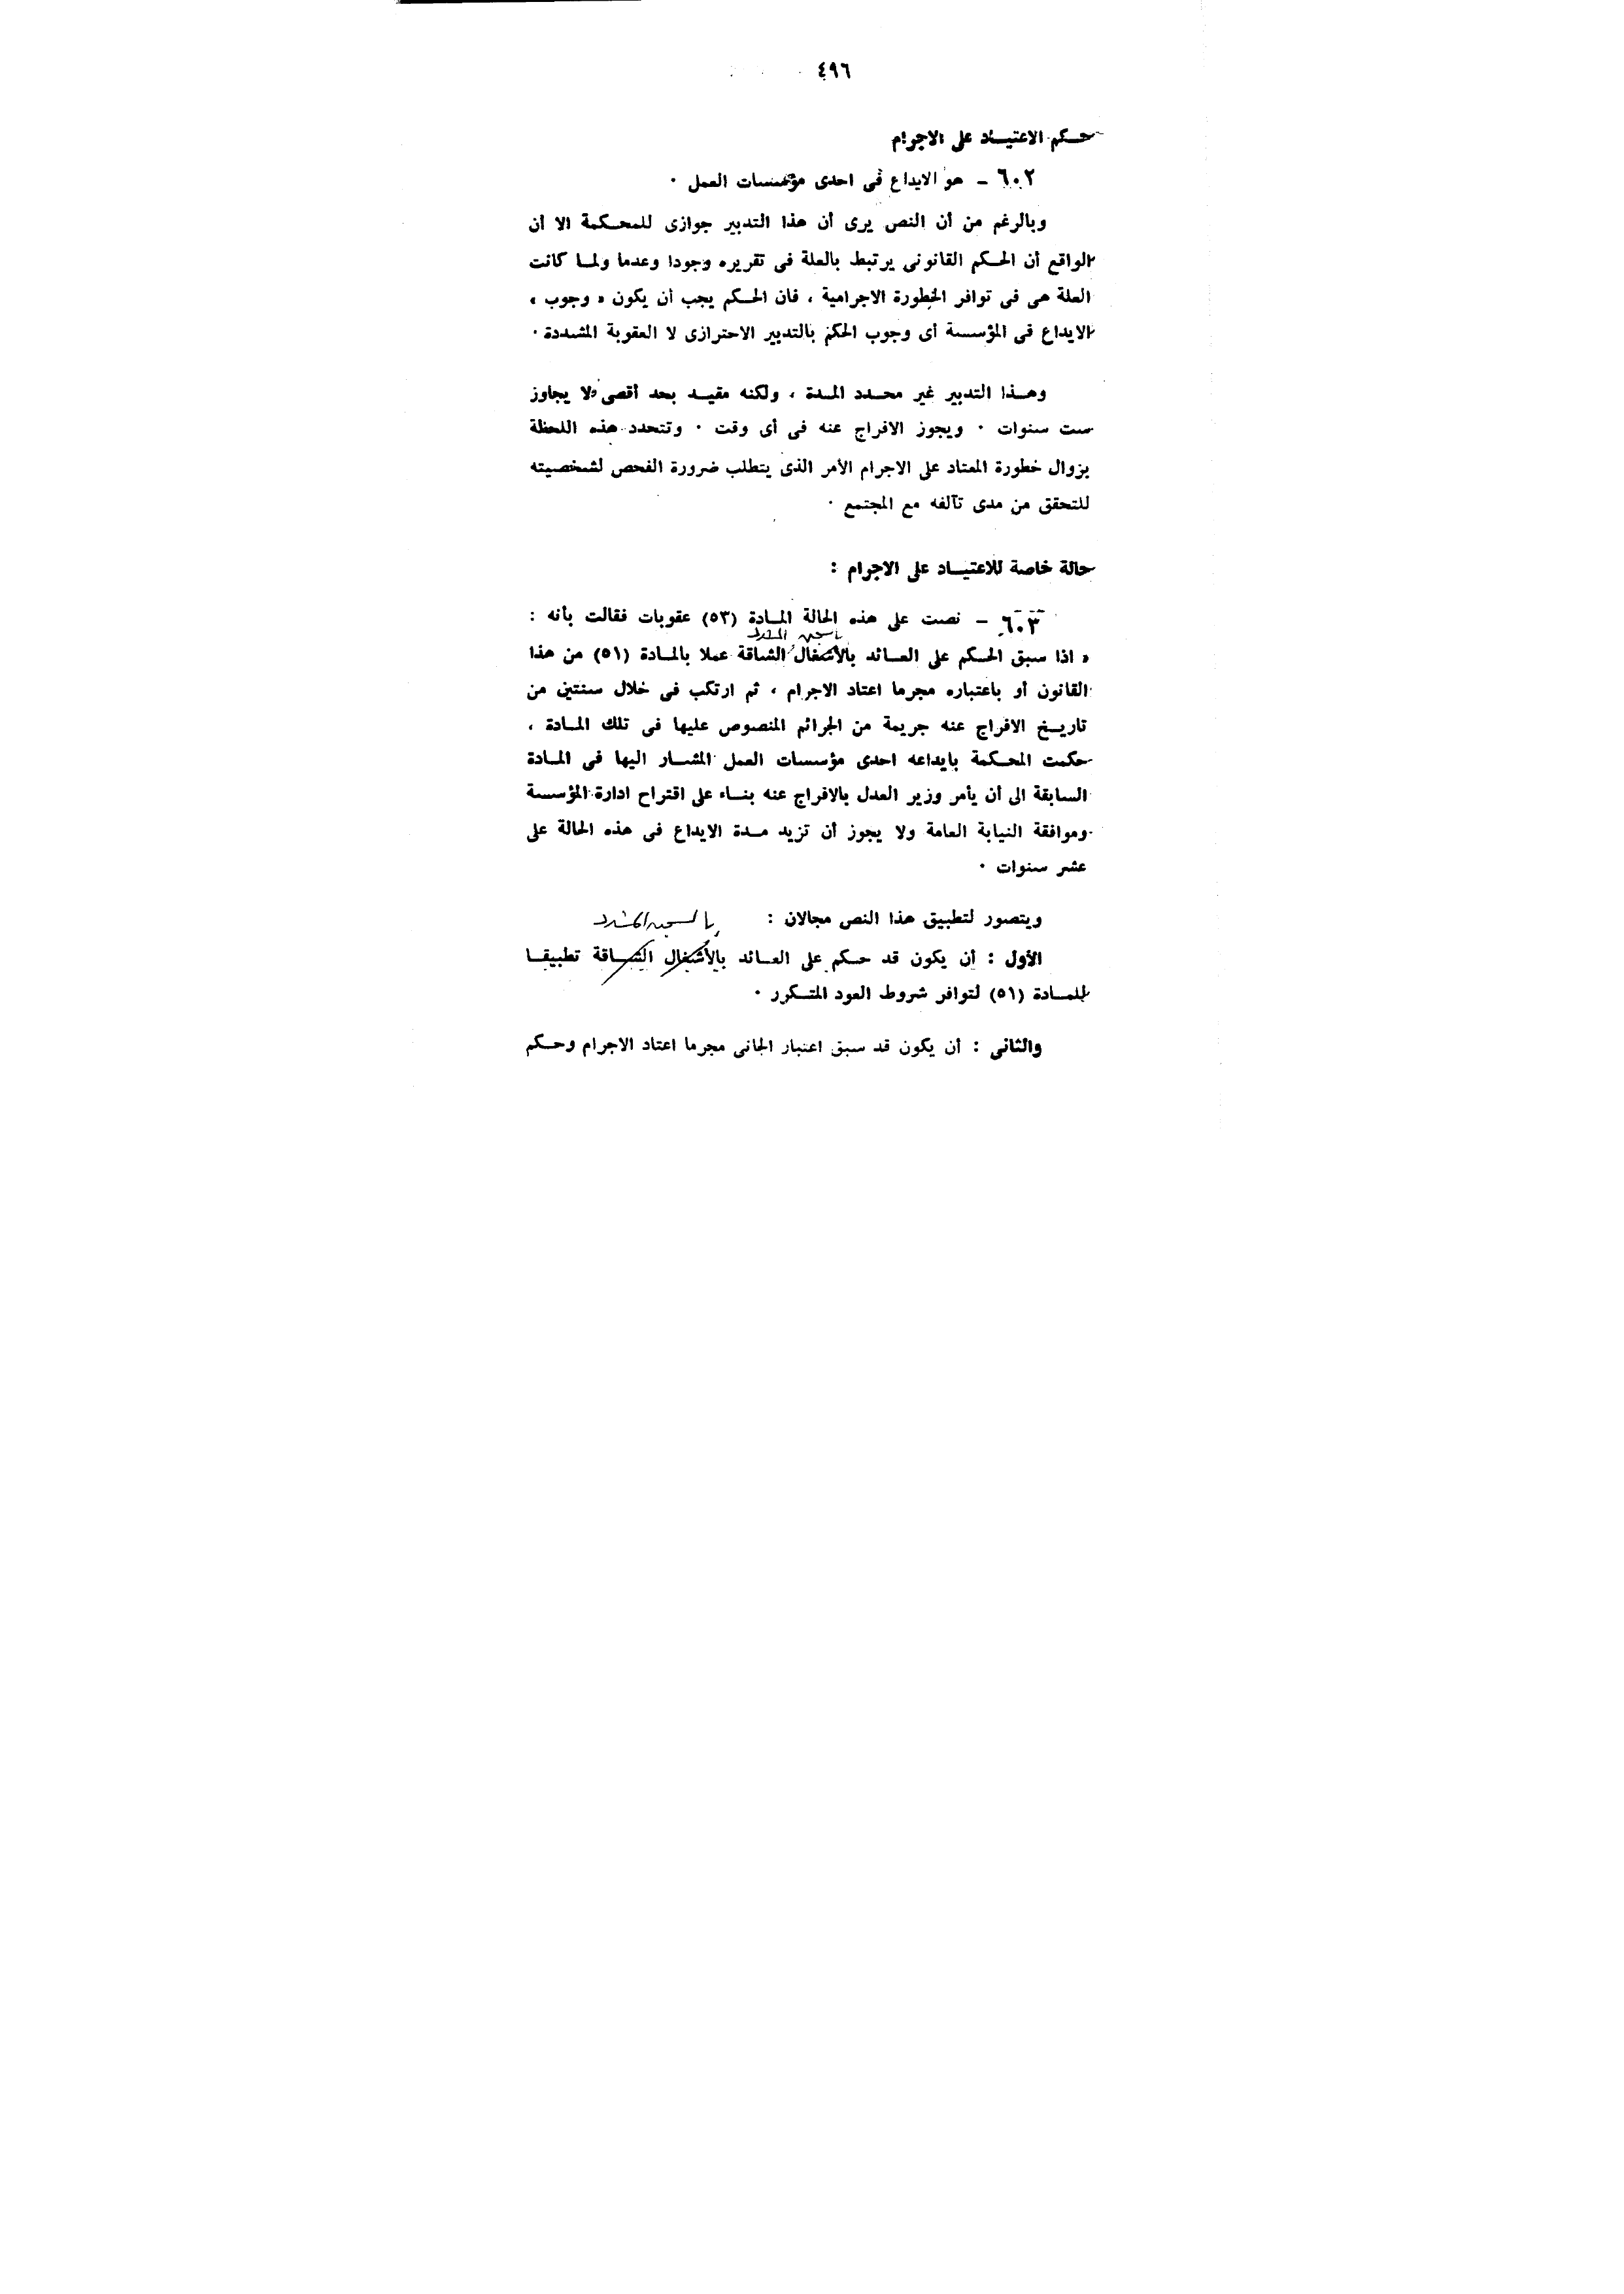 ٤٩٦
حكم الاعتياد على الاجرام
٦٠٢ - هو الايداع فى احدى مؤسسات العمل .
وبالرغم من أن النص يرى أن هذا التدبير جوازى للمحكمة الا أن
الواقع أن الحكم القانونى يرتبط بالعلة فى تقريره وجودا وعدما ولما كانت
العلة هى فى توافر الخطورة الاجرامية ، فان الحكم يجب أن يكون « وجوب »
الايداع فى المؤسسة أى وجوب الحكم بالتدبير الاحترازى لا العقوبة المشددة .
وهذا التدبير غير محدد المدة ، ولكنه مقيد بحد أقصى لا يجاوز
ست سنوات . ويجوز الافراج عنه فى أى وقت . وتتحدد هذه اللحظة
بزوال خطورة المعتاد على الاجرام الأمر الذى يتطلب ضرورة الفحص لشخصيته
للتحقق من مدى تآلفه مع المجتمع .
حالة خاصة للاعتياد على الاجرام :
٦٠٣ - نصت على هذه الحالة المادة (٥٣) عقوبات فقالت بأنه :
بالسجن المشدد
« اذا سبق الحكم على العائد بالأشغال الشاقة عملا بالمادة (٥١) من هذا
القانون أو باعتباره مجرما اعتاد الاجرام ، ثم ارتكب فى خلال سنتين من
تاريخ الافراج عنه جريمة من الجرائم المنصوص عليها فى تلك المادة ،
حكمت المحكمة بايداعه احدى مؤسسات العمل المشار اليها فى المادة
السابقة الى أن يأمر وزير العدل بالافراج عنه بناء على اقتراح ادارة المؤسسة
وموافقة النيابة العامة ولا يجوز أن تزيد مدة الايداع فى هذه الحالة على
عشر سنوات .
ويتصور لتطبيق هذا النص مجالان : بالسجن المشدد
الأول : أن يكون قد حكم على العائد بالأشغال الشاقة تطبيقا
للمادة (٥١) لتوافر شروط العود المتكرر .
والثانى : أن يكون قد سبق اعتبار الجانى مجرما اعتاد الاجرام وحكم